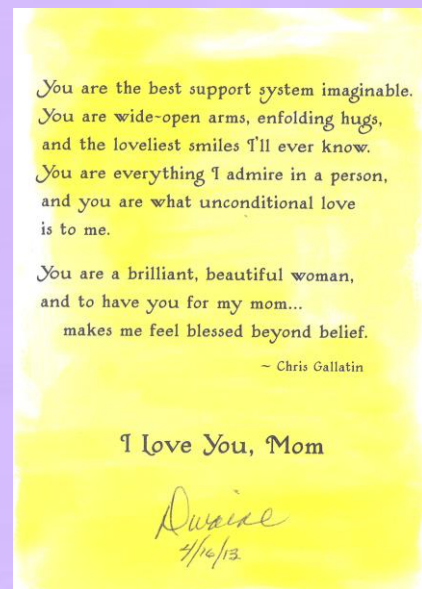 You are the best support system imaginable.
You are wide-open arms, enfolding hugs,
and the loveliest smiles I'll ever know.
You are everything I admire in a person,
and you are what unconditional love
is to me.
You are a brilliant, beautiful woman,
and to have you for my mom...
makes me feel blessed beyond belief.
~ Chris Gallatin
I Love You, Mom
Dwaine
4/16/13